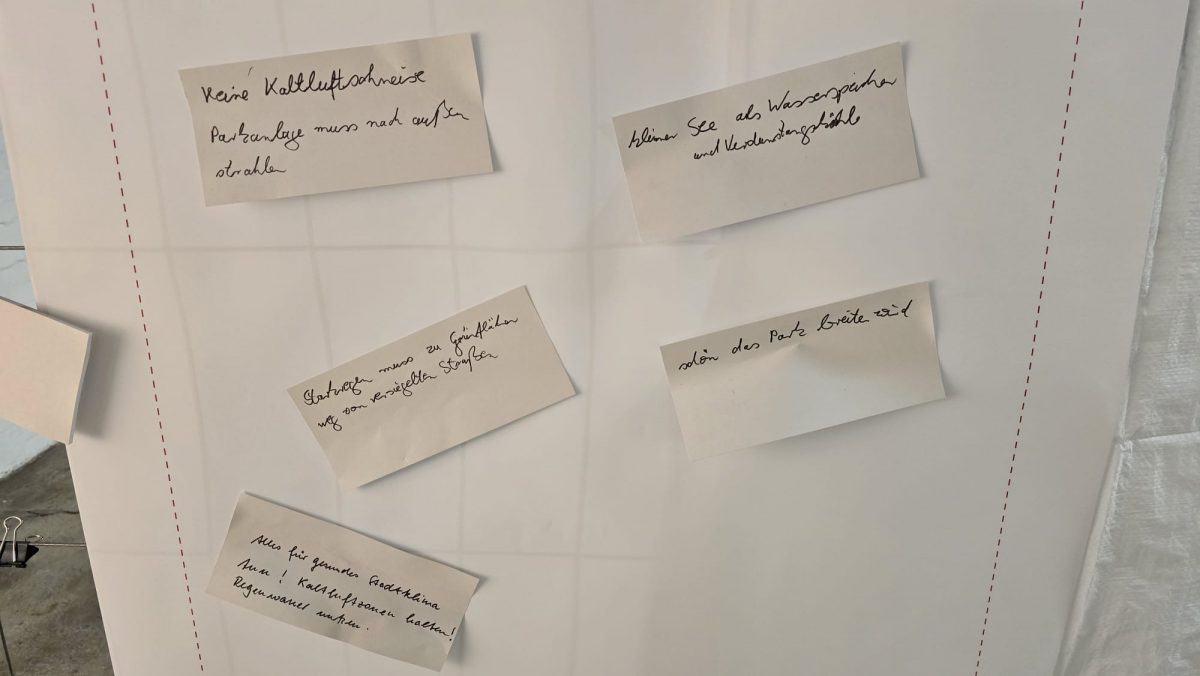 Keine Kaltluftschneise
Parkanlage muss nach außen
strahlen
kleiner See als Wasserspeicher
und Verdunstungskühle
Starkregen muss zu Grünflächen
weg von versiegelten Straßen
schön das Park breite wird
Alles für gesundes Stadtklima
tun! Kaltluftzonen halten!
Regenwasser nutzen.